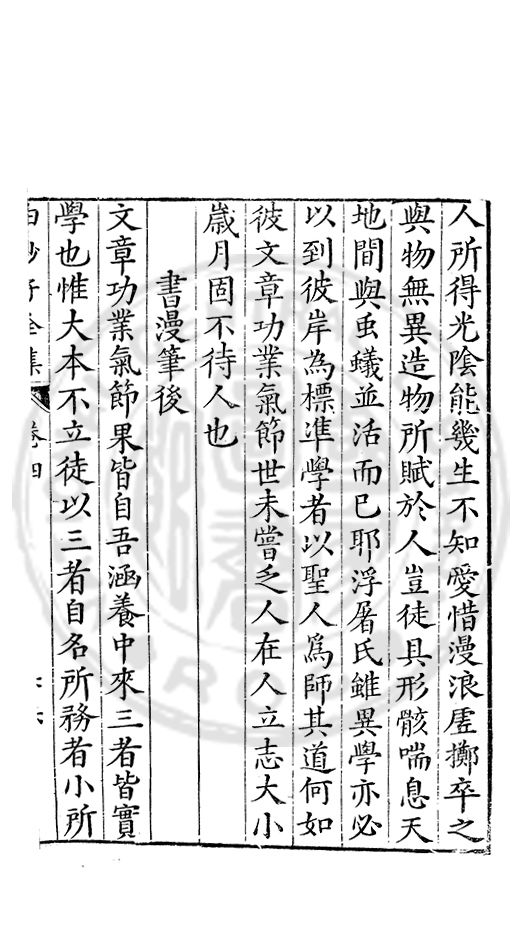 人所得光陰能幾生不知愛惜漫浪虗擲卒之
與物無異造物所賦於人豈徒具形骸喘息天
地間與䖝蟻並活而已耶浮屠氏雖異學亦必
以到彼岸為標準學者以聖人爲師其道何如
彼文章功業氣節世未嘗乏人在人立志大小
歲月固不待人也
書漫筆後
文章功業氣節果皆自吾涵養中來三者皆實
學也惟大本不立徒以三者自名所務者小所
白沙子全集
卷四